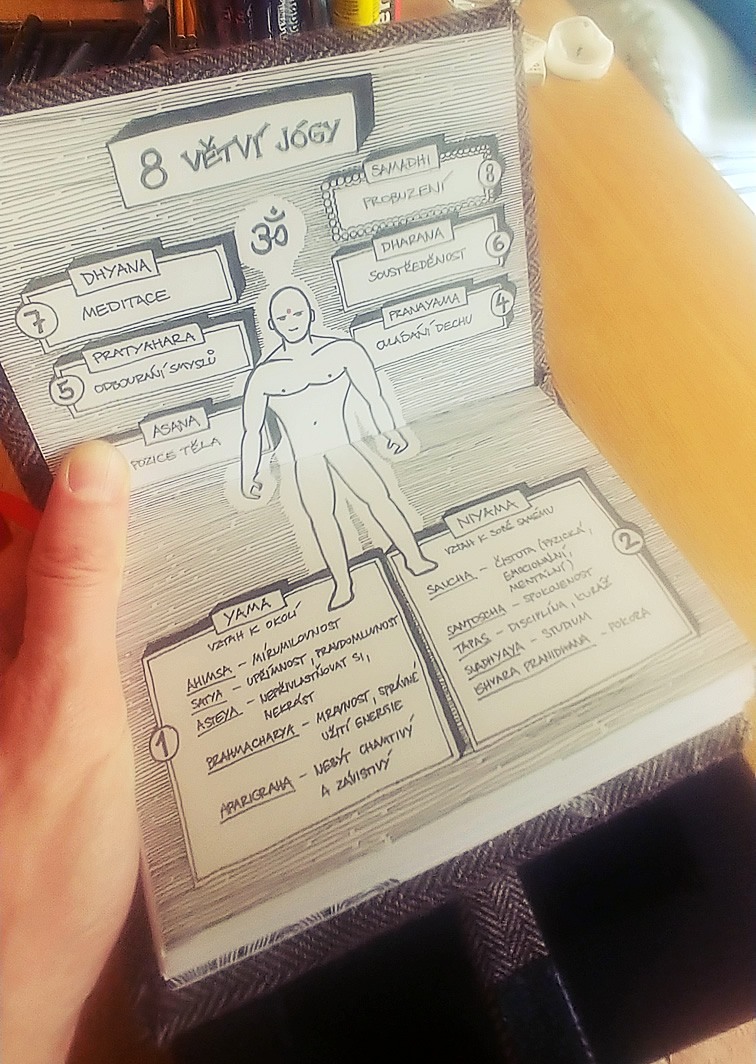 8 VĚTVÍ JÓGY
ॐ
SAMADHI
8
PROBUZENÍ
DHARANA
6
SOUSTŘEDĚNOST
PRANAYAMA
4
OVLÁDÁNÍ DECHU
DHYANA
7
MEDITACE
PRATYAHARA
5
ODBOURÁNÍ SMYSLŮ
ASANA
POZICE TĚLA
YAMA
VZTAH K OKOLÍ
1
AHIMSA – MÍRUMILOVNOST
SATYA – UPŘÍMNOST, PRAVDOMLUVNOST
ASTEYA – NEPŘIVLASTŇOVAT SI,
NEKRÁST
BRAHMACHARYA – MRAVNOST, SPRÁVNÉ
UŽITÍ ENERGIE
APARIGRAHA – NEBÝT CHAMTIVÝ
A ZÁVISTIVÝ
NIYAMA
VZTAH K SOBĚ SAMÉMU
2
SAUCHA – ČISTOTA (FYZICKÁ,
EMOCIONÁLNÍ,
MENTÁLNÍ)
SANTOSCHA – SPOKOJENOST
TAPAS – DISCIPLÍNA, KURÁŽ
SVADHYAYA – STUDIUM
ISHVARA PRANIDHANA – POKORA